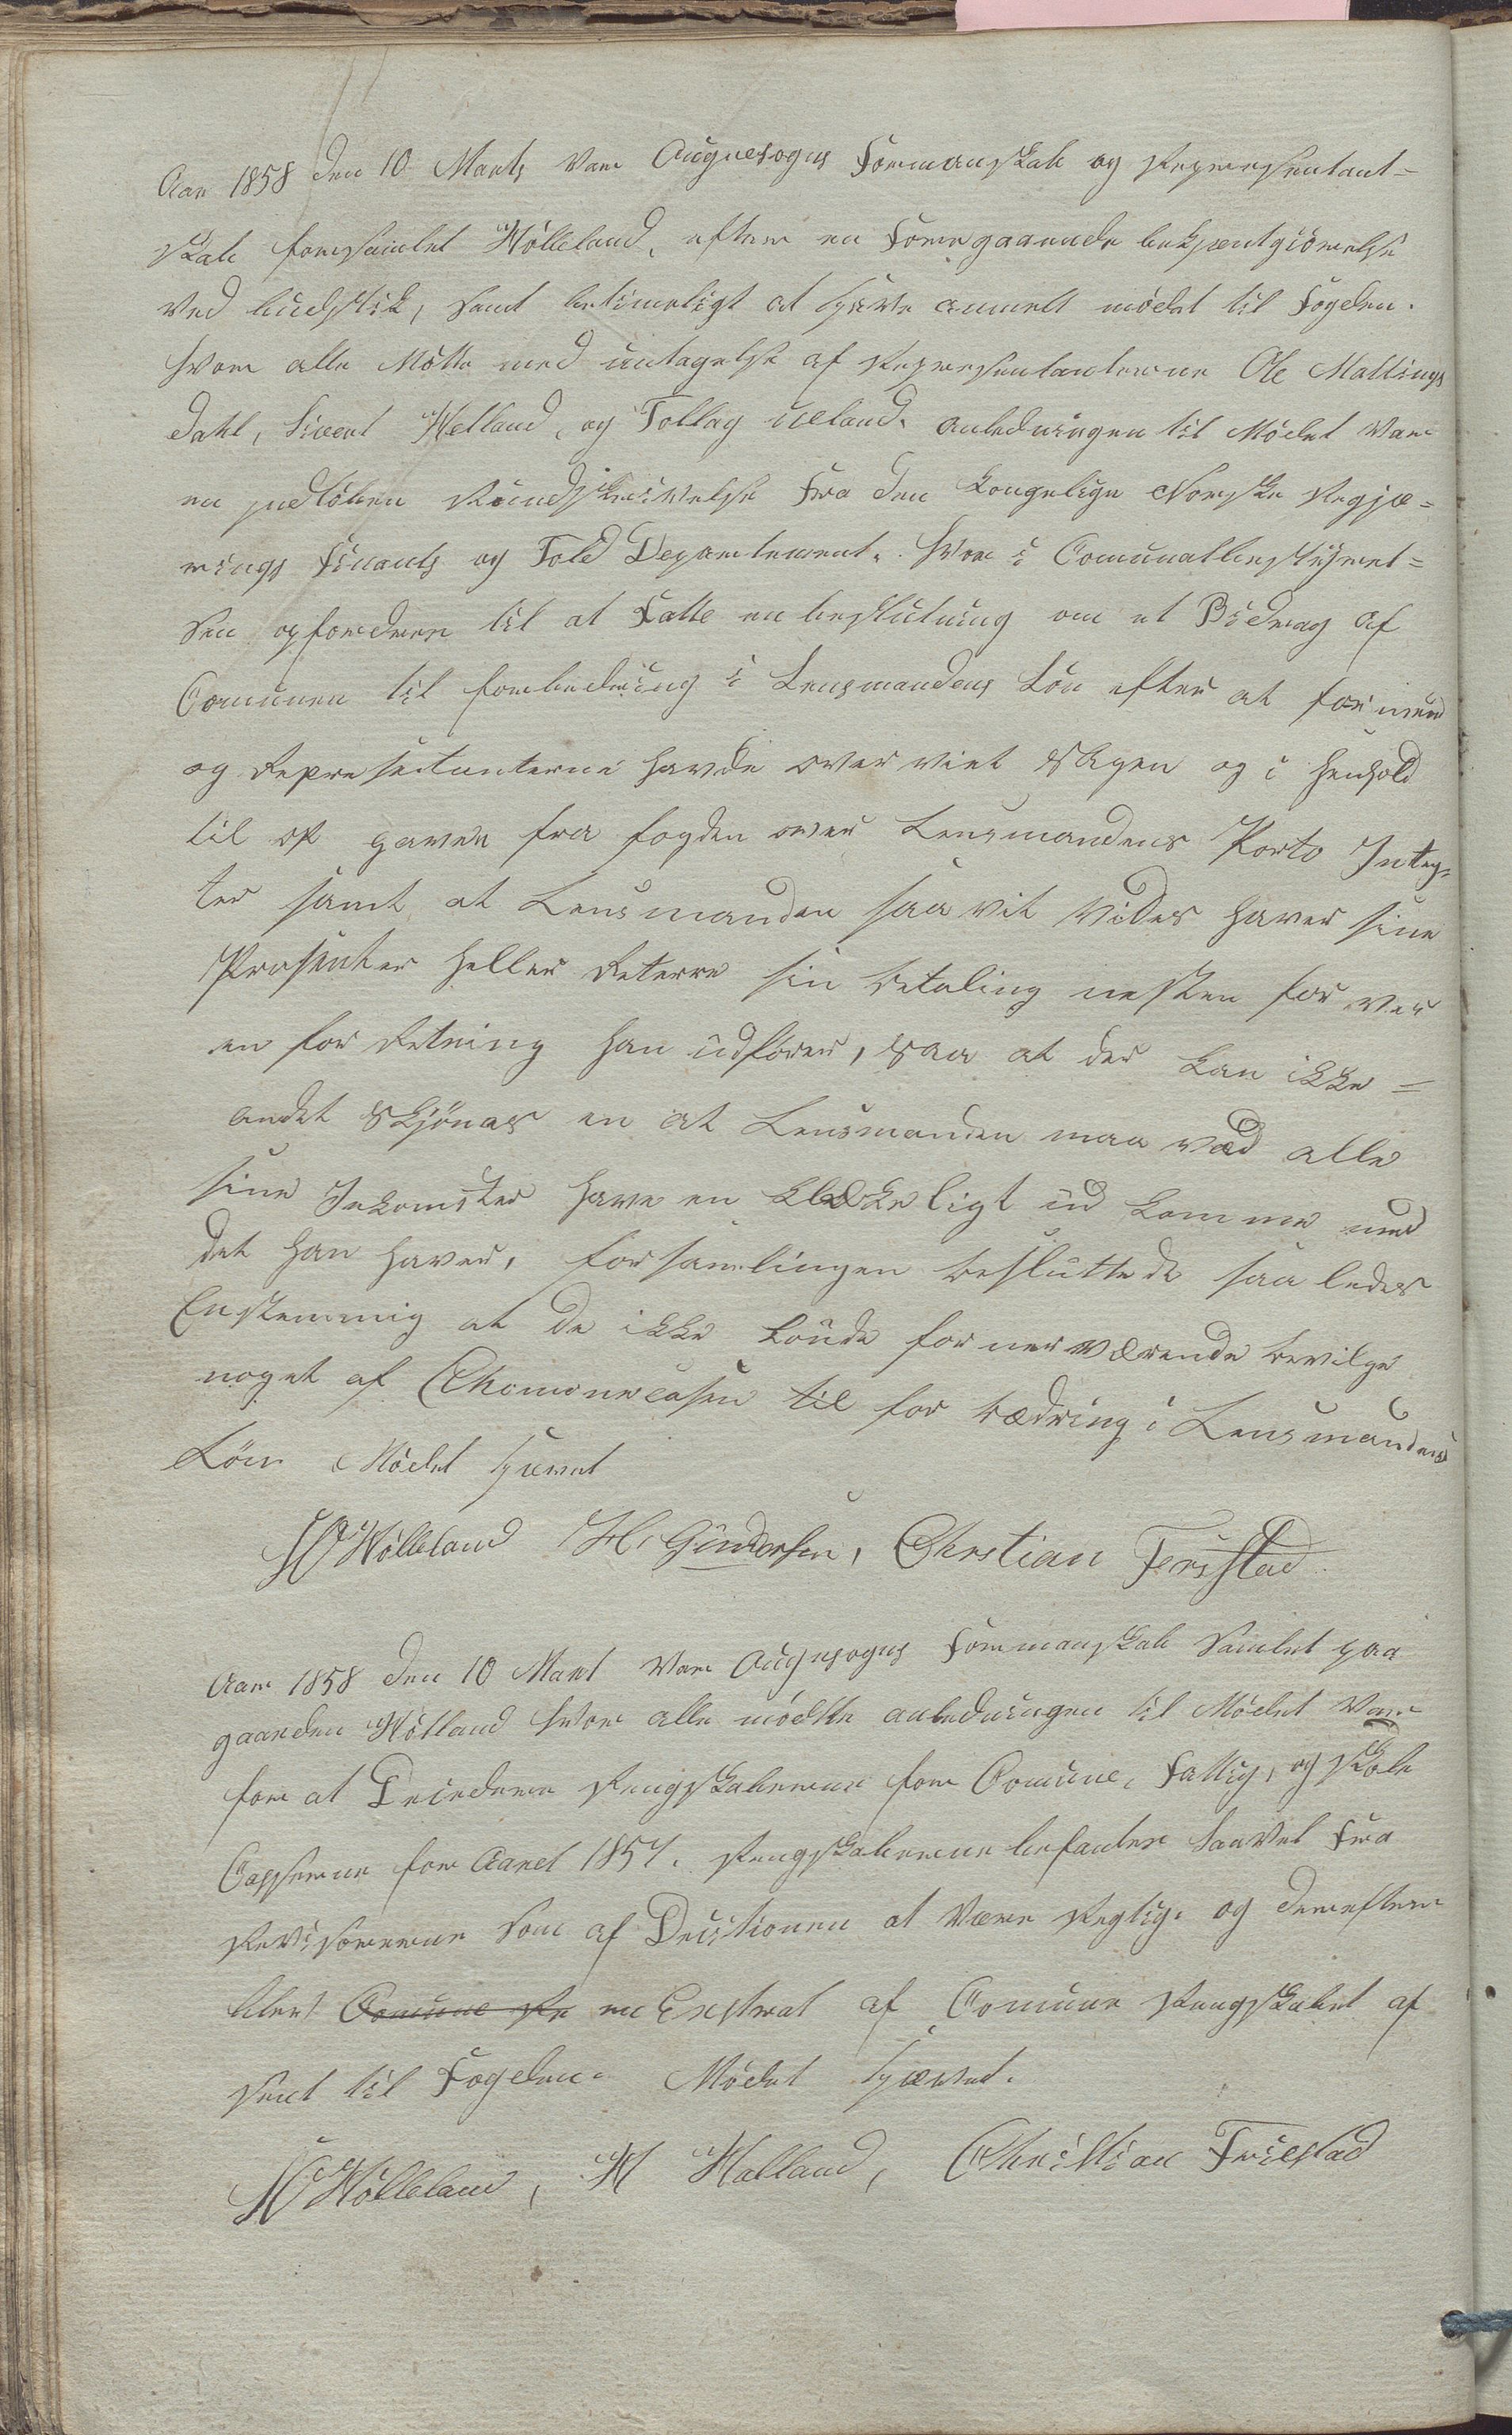 Aar 1858 den 10 Marts var Augnesogns Formanskab og Repræsentant-
skab forsamlet Hölleland, efter en Foregaaende bekjentgiörelse
ved budstik, samt betimeligt at have anmelt mödet til Fogden.
hvor alle Mötte med untagelse af Repræsentanterne Ole Mattings
dahl, Sivert Hetland, og Tollag Ueland. anledningen til Mödet var
en indlöben Rundskrivelse fra den kongelige Norske Regjæ-
rings Finants og Told Departement. hvor i Comunalbestyrel-
sen opfordrer til at Fatte en beslutning om et Bidrag af
Comunen til forbedring i Lensmandens Lön efter at formend
og Representanterne havde over viet Sagen og i henhold
til op gaven fra fogden over Lensmandens Porto Integ-
ter samt at Lensmanden saa vit vides haver sine
Prosenter heller Retere sin betaling nesten for ver
en for Retning han udförer, saa at der kan ikke-
andet Skjönes en at Lensmanden maa ved alle
sine Inkomster have en klækkeligt ud komme med
det han haver, forsamlingen besluttede saa ledes
Enstemmig at de ikke kunde for nerværende bevilge
noget af Chomunecasen til for bædring i Lensmandens
Lön Mödet hævet
HO Hölleland H. Gundersen, Chrstian Ferstad
Aar 1858 den 10 Mart var Augnesogns Formanskab Samlet paa
gaarden Hölland hvor alle mödtte anledningen til Mödet var
for at Desedere Rengskaberne for Comune, Fattig, og Skole
Casserne for Aaret 1857. Rengskaberne befantes saavel fra
Revisorerne som af Desitionen at være Regtig. og derefter
blev Comune Re en Exstrat af Comune Rengskabet af
sent til Fogden. Mödet hævet.
HO Hölleland, H Halland, Christian Friestad